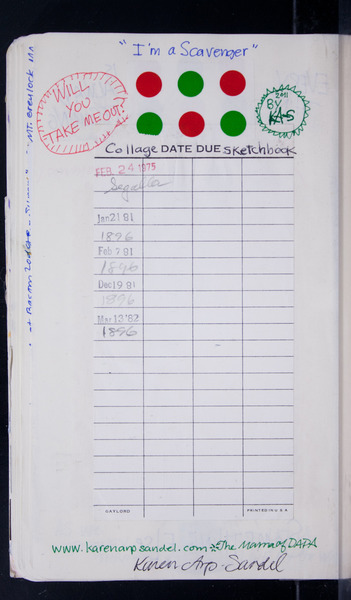 "I'm a Scavenger"
WILL
YOU
TAKE ME OUT?
2011
BY
KAS
Mt. Greylock
Collage DATE DUE Sketchbook
FEB. 24 1975
Jan 21 81
1896
Feb 7 81
1896
Dec 19 81
1896
Mar 13 '82
1896
GAYLORD
PRINTED IN U.S.A.
www.karenarpsandel.com * The Mama of DADA
Karen Arp-Sandel